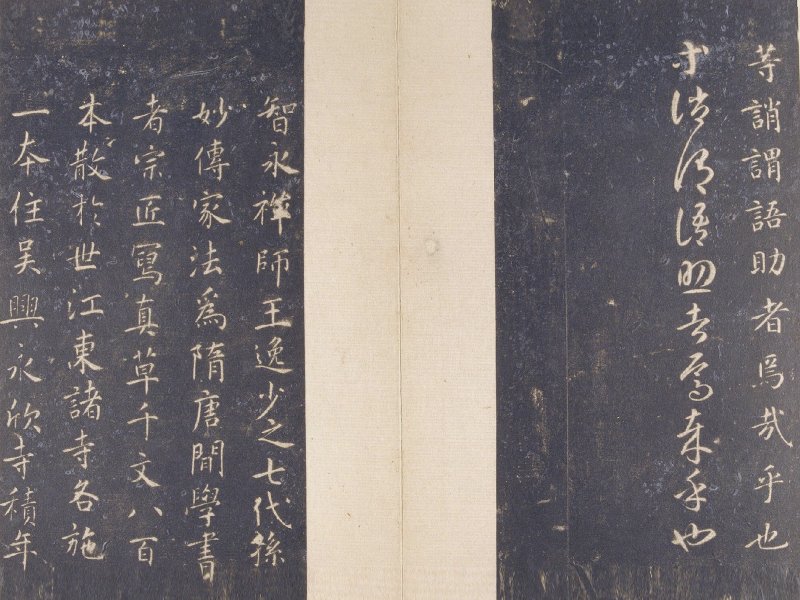 等誚謂語助者焉哉乎也
等誚謂語助者焉哉乎也
智永禅師王逸少之七代孫
妙傳家法為隋唐間學書
者宗匠寫真草千文八百
本散於世江東諸寺各施
一本住吴興永欣寺積年